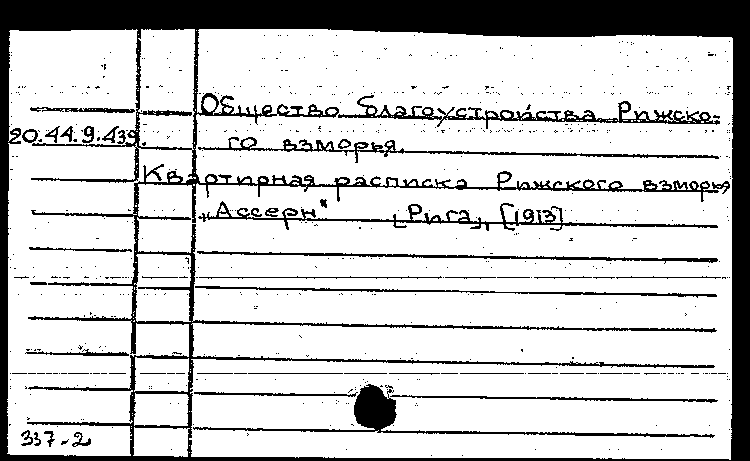 Общество благоустройства Рижско-
20.44.9.439. го взморья.
Квартирная расписка Рижского взморья
"Ассерн" [Рига], [1913]
337-2